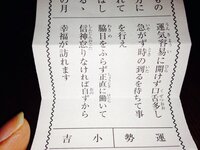 運気容易に開けず口舌多し
急がず時の到るを待ちて事
を行え
脇目をふらず正直に働いて
信神怠りなければ自ずから
幸福が訪れます
運勢
小吉
の月